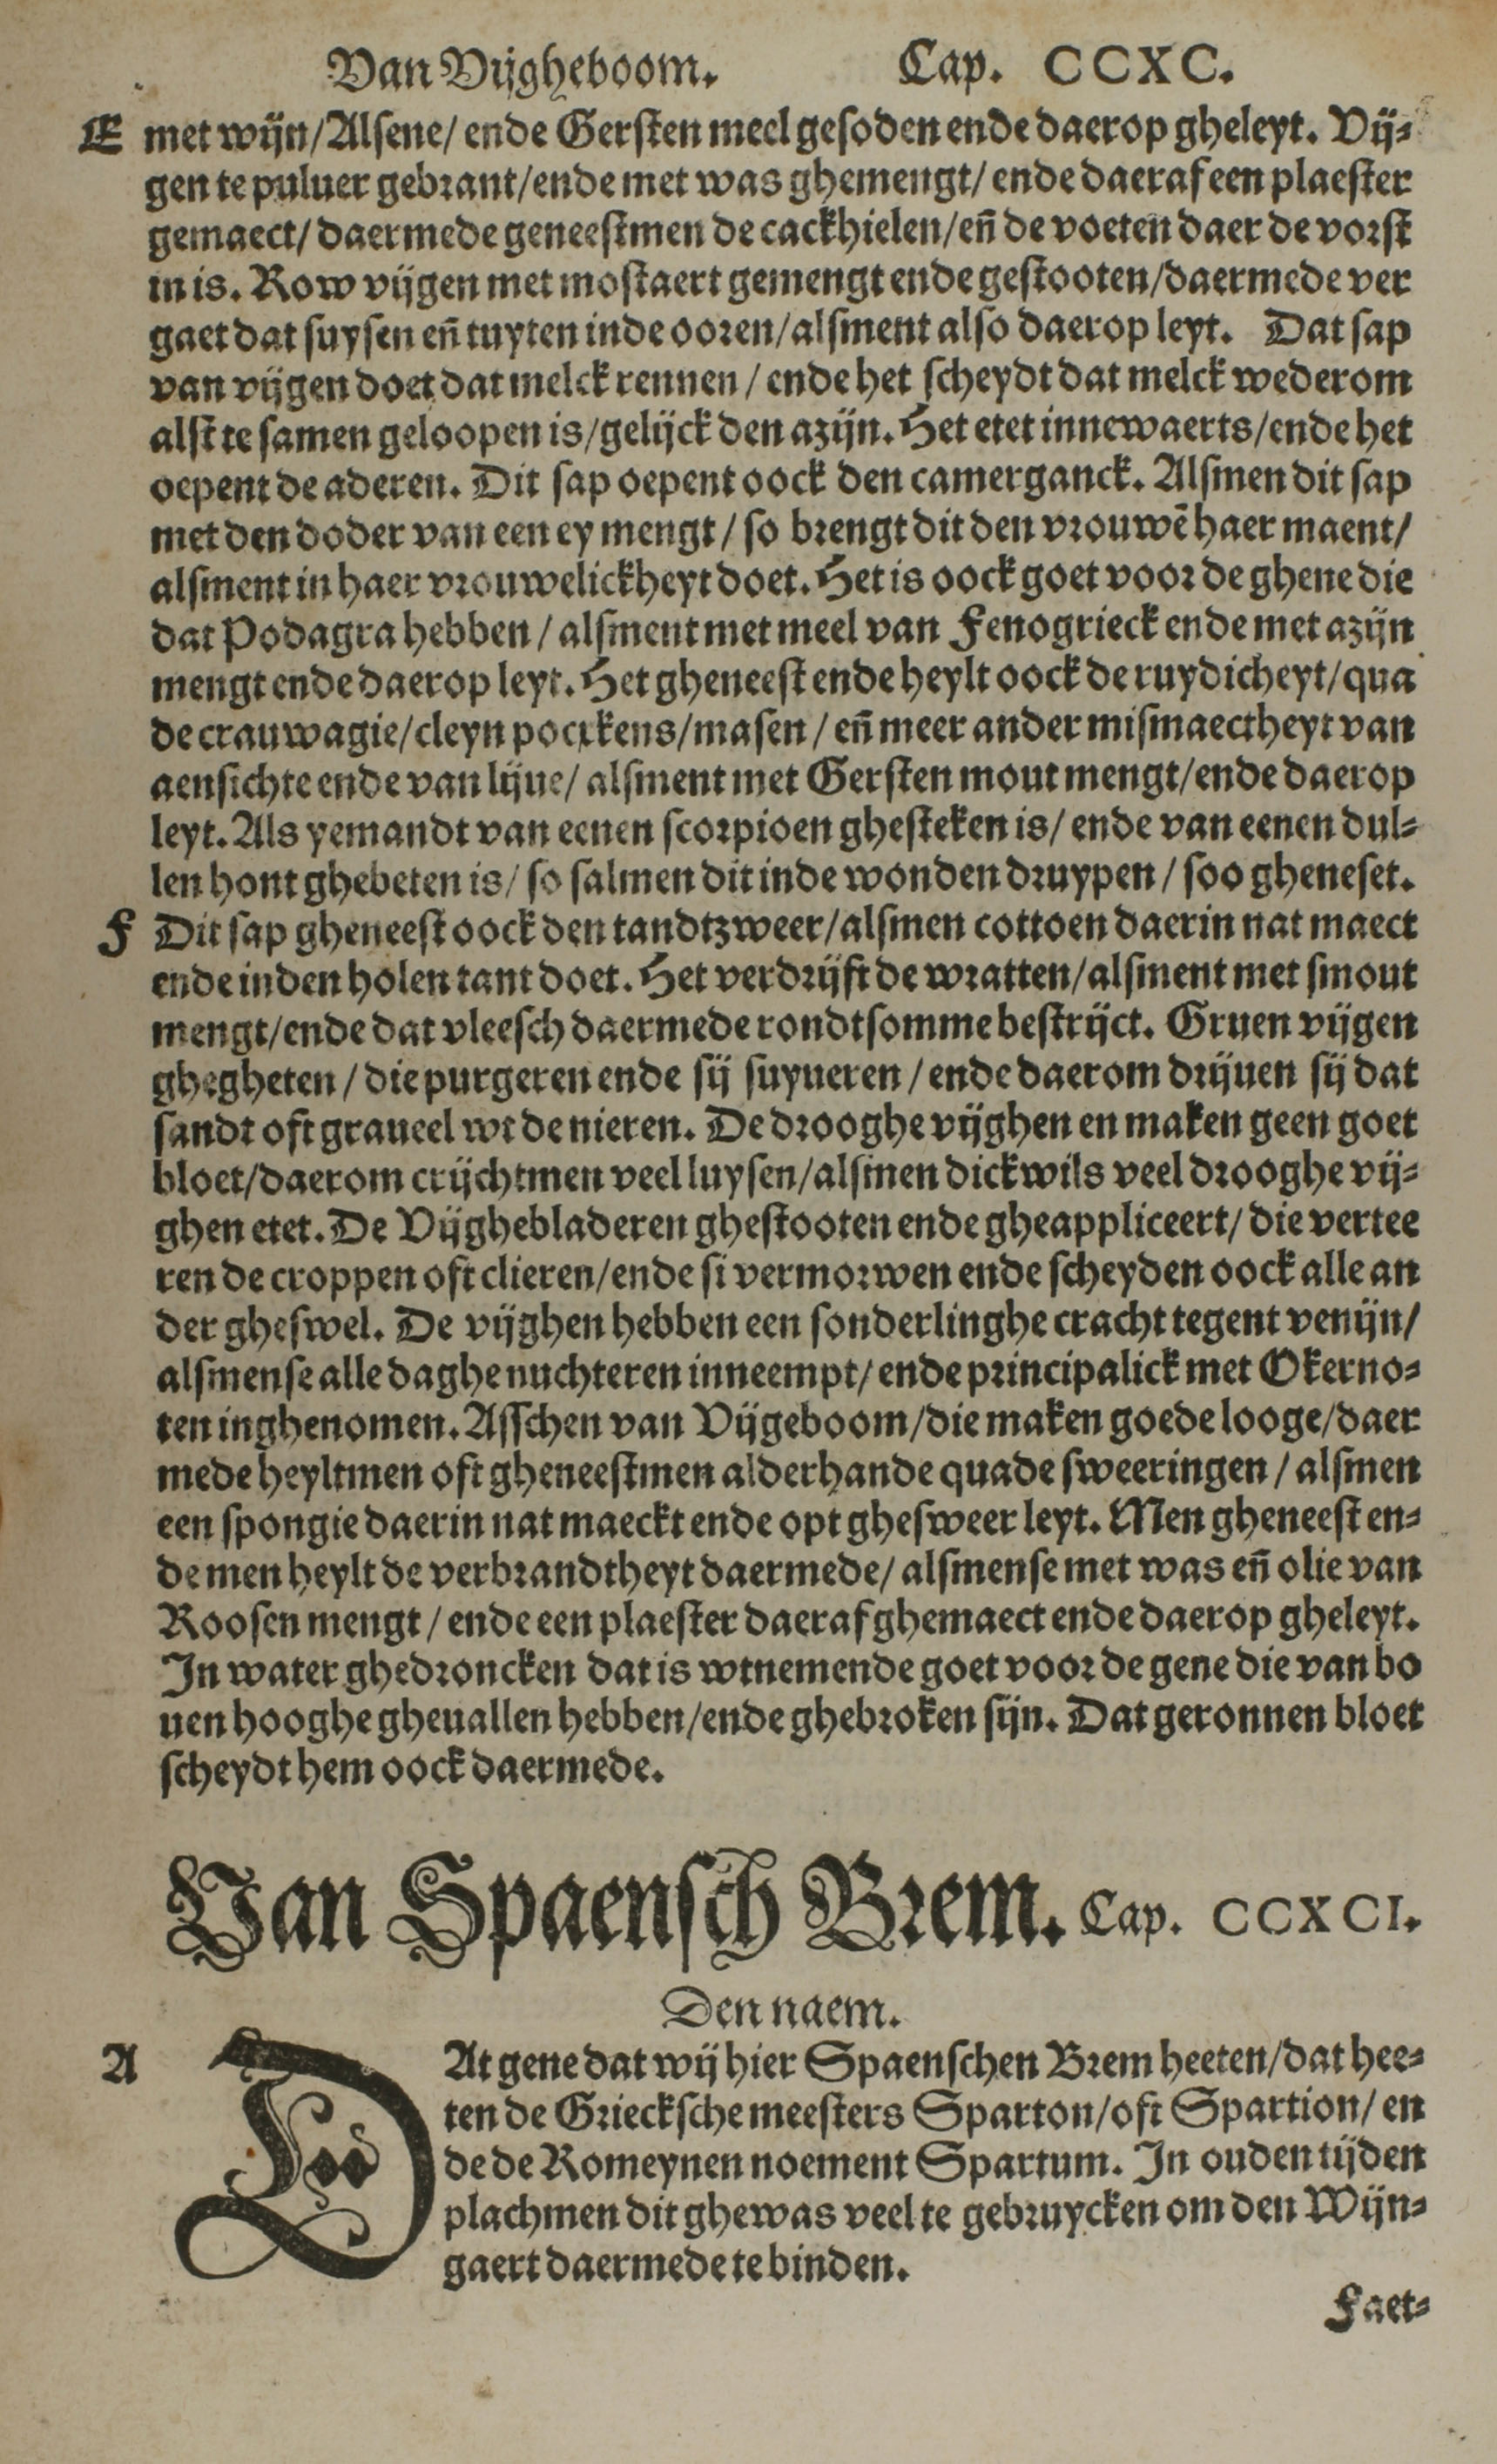 Van Vijgheboom. Cap. CCXC.
E met wijn/Alsene/ ende Gersten meel gesoden ende daerop gheleyt. Vij⸗
gen te puluer gebrant/ende met was ghemengt/ ende daeraf een plaester
gemaect/ daermede geneestmen de cackhielen/en̄ de voeten daer de vorst
in is. Row vijgen met mostaert gemengt ende gestooten/daermede ver
gaet dat suysen en̄ tuyten inde ooren/alsment also daerop leyt. Dat sap
van vijgen doet dat melck rennen / ende het scheydt dat melck wederom
alst te samen geloopen is/gelijck den azijn. Het etet innewaerts/ende het
oepent de aderen. Dit sap oepent oock den camerganck. Alsmen dit sap
met den doder van een ey mengt / so brengt dit den vrouwē haer maent/
alsment in haer vrouwelickheyt doet. Het is oock goet voor de ghene die
dat Podagra hebben / alsment met meel van Fenogrieck ende met azijn
mengt ende daerop leyt. Het gheneest ende heylt oock de ruydicheyt/qua
de crauwagie/cleyn pocxkens/masen / en̄ meer ander mismaectheyt van
aensichte ende van lijue/ alsment met Gersten mout mengt/ende daerop
leyt. Als yemandt van eenen scorpioen ghesteken is/ ende van eenen dul⸗
len hont ghebeten is/ so salmen dit inde wonden druypen / soo gheneset.
F Dit sap gheneest oock den tandtzweer/alsmen cottoen daerin nat maect
ende inden holen tant doet. Het verdrijft de wratten/alsment met smout
mengt/ende dat vleesch daermede rondtsomme bestrijct. Gruen vijgen
ghegheten / die purgeren ende sij suyueren / ende daerom drijuen sij dat
sandt oft graueel wt de nieren. De drooghe vijghen en maken geen goet
bloet/daerom crijchtmen veel luysen/alsmen dickwils veel drooghe vij⸗
ghen etet. De Vijghebladeren ghestooten ende gheappliceert/ die vertee
ren de croppen oft clieren/ende si vermorwen ende scheyden oock alle an
der gheswel. De vijghen hebben een sonderlinghe cracht tegent venijn/
alsmense alle daghe nuchteren inneempt/ ende principalick met Okerno⸗
ten inghenomen. Asschen van Vijgeboom/die maken goede looge/daer
mede heyltmen oft gheneestmen alderhande quade sweeringen / alsmen
een spongie daerin nat maeckt ende opt ghesweer leyt. Men gheneest en⸗
de men heylt de verbrandtheyt daermede/ alsmense met was en̄ olie van
Roosen mengt / ende een plaester daeraf ghemaect ende daerop gheleyt.
In water ghedroncken dat is wtnemende goet voor de gene die van bo
uen hooghe gheuallen hebben/ende ghebroken sijn. Dat geronnen bloet
scheydt hem oock daermede.
Van Spaensch Brem. Cap. CCXCI.
Den naem.
A DAt gene dat wij hier Spaenschen Brem heeten/dat hee⸗
ten de Griecksche meesters Sparton/oft Spartion/ en
de de Romeynen noement Spartum. In ouden tijden
plachmen dit ghewas veel te gebruycken om den Wijn⸗
gaert daermede te binden.
Faet⸗